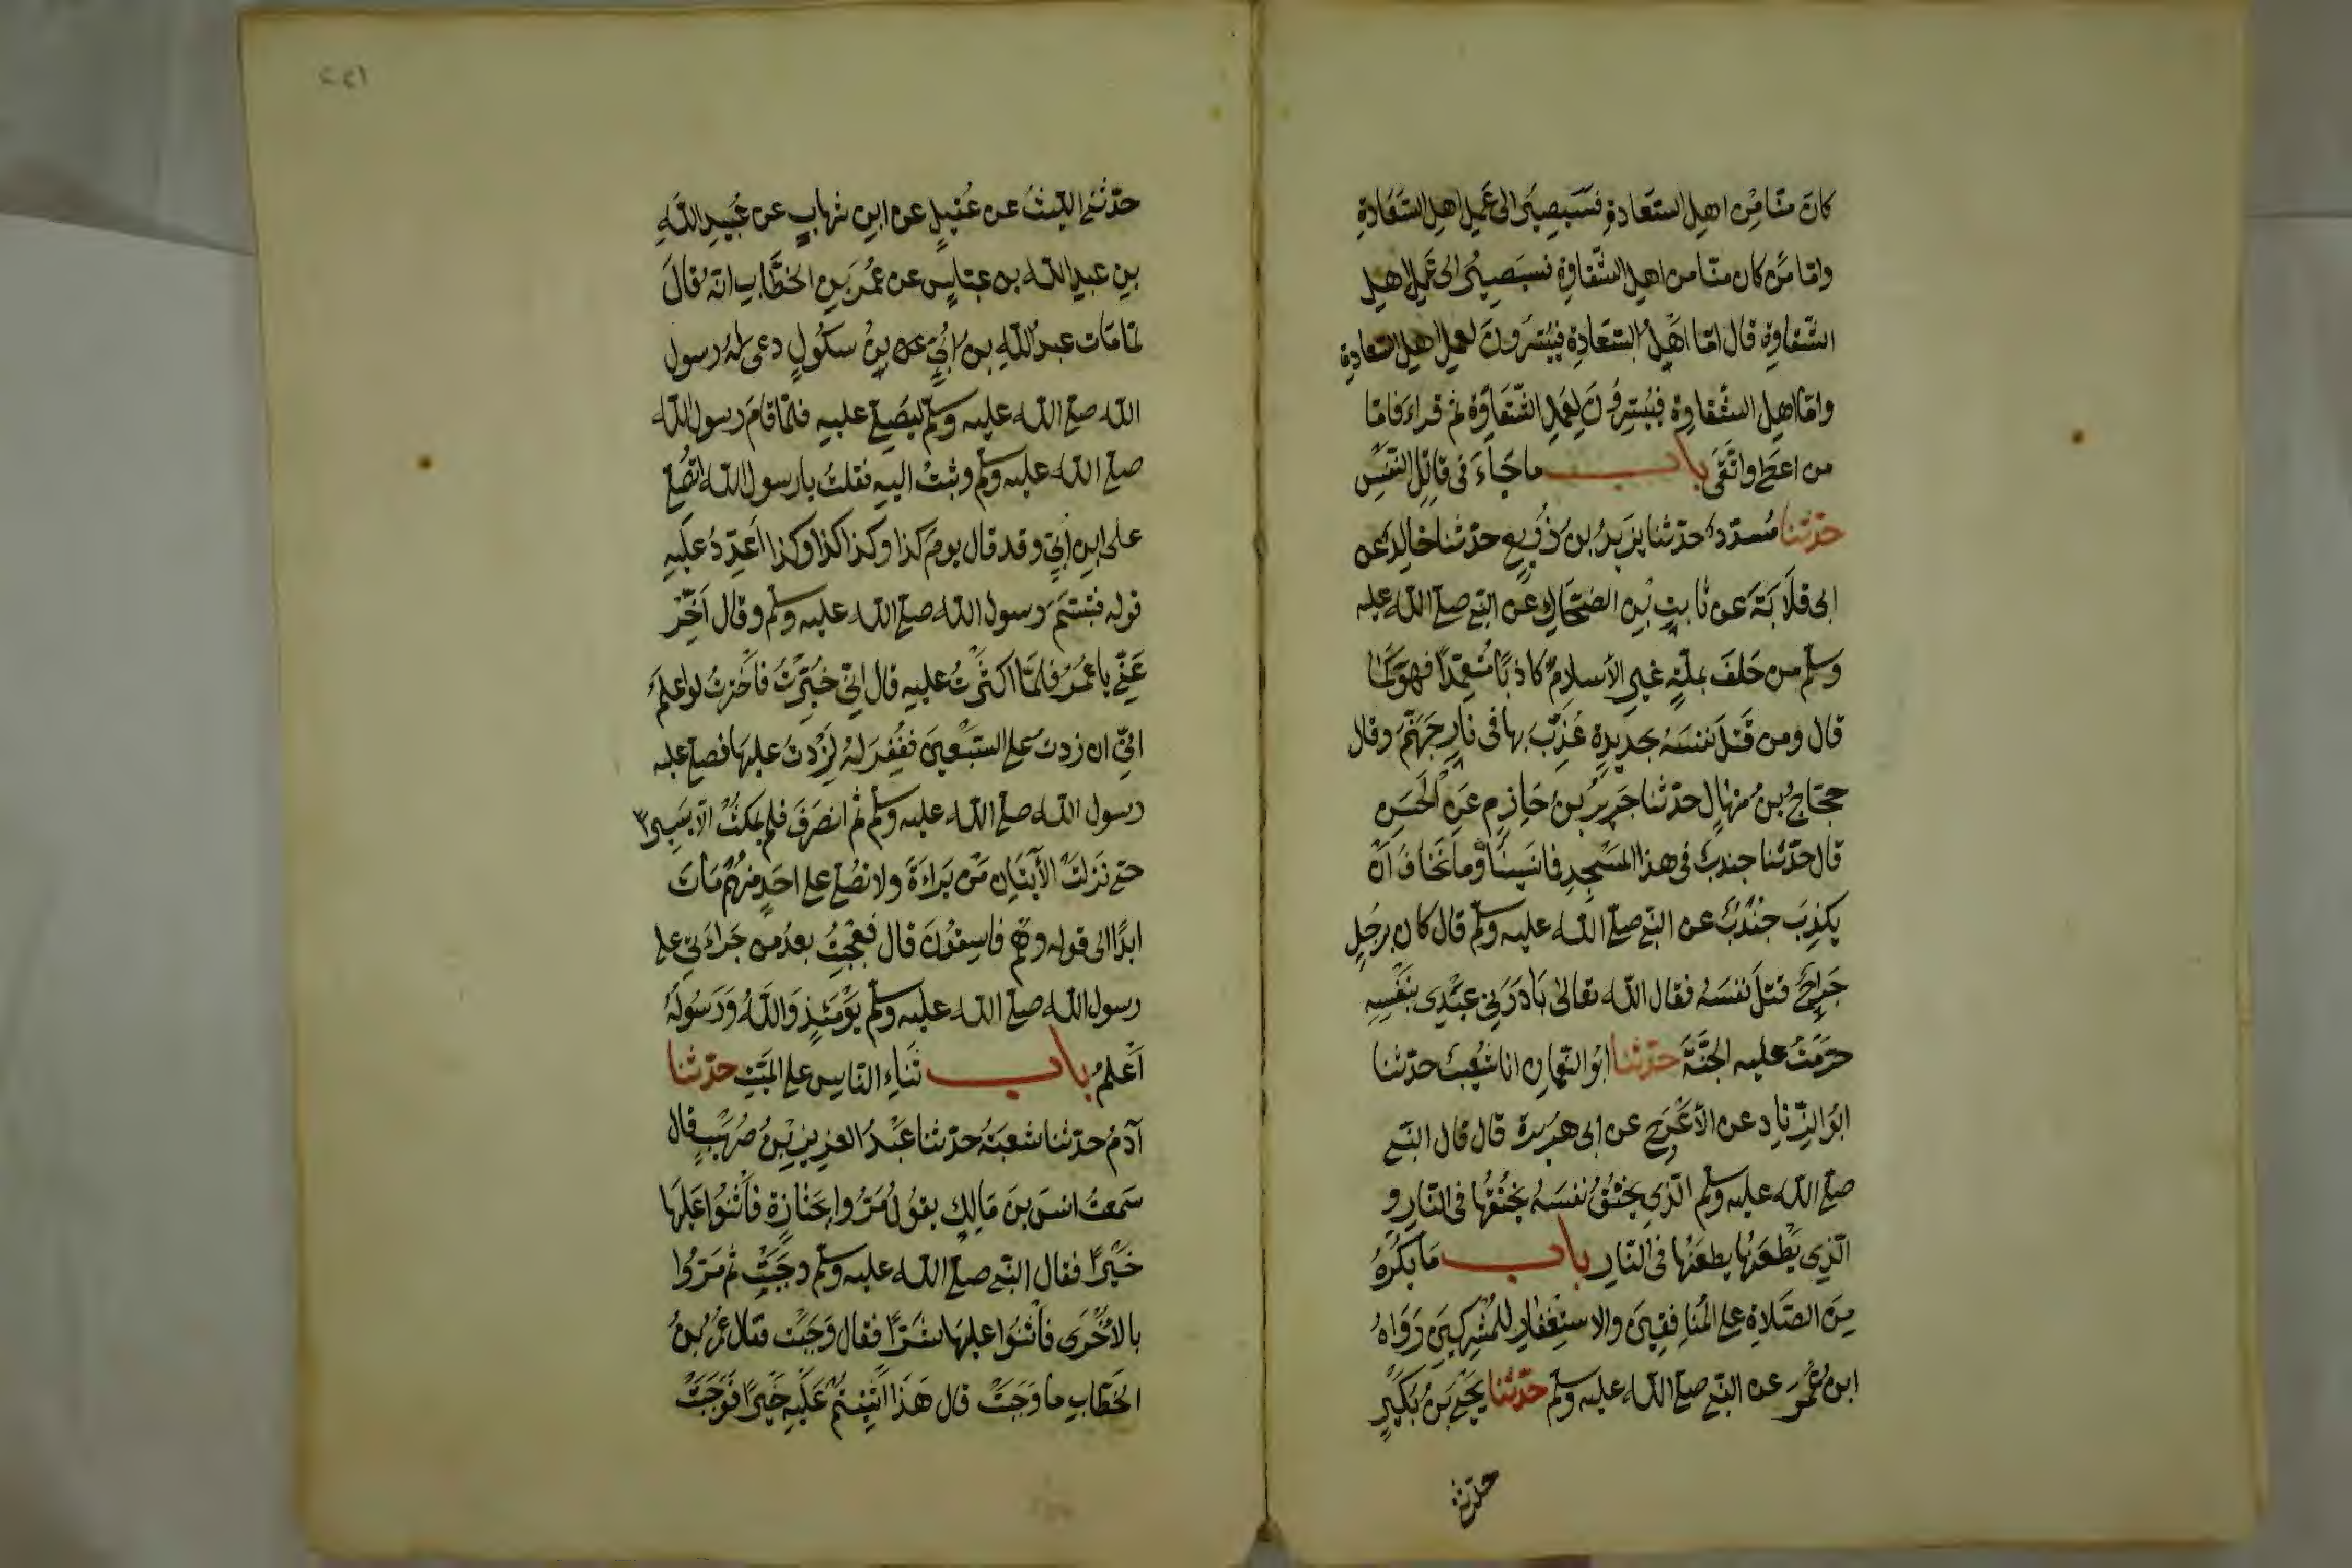 كان منّا مِن اهل السّعادةِ فسيصير الى عمل اهل السّعادة
وامّا مَن كان منّا من اهل الشّقاوة فسيصير الى عمل اهل
الشّقاوة قال امّا اهل السّعادة فييسّرون لعمل اهل السعادة
وامّا اهل الشقاوة فييسرون لعمل الشّقاوة ثم قراء فامّا
من اعطى واتّقى باب ما جاء فى قاتل النّفس
حدّثنا مُسدّد حدّثنا يزيد بن زُريع حدّثنا خالد عن
ابى قلابة عن ثابت بن الضّحاك عن النّبى صلى الله عليه
وسلم من حلف بملّة غير الأسلام كاذبًا مُتعمّدًا فهو كما
قال ومن قتل نفسه بحديدة عُذّب بها فى نار جهنّم وقال
حجّاج بن منهال حدّثنا جرير بن حازم عن الحسن
قال حدّثنا جندب فى هذا المسجد فما نسينا وما نخاف ان
يكذب جُندب عن النّبى صلى الله عليه وسلم قال كان برجل
جراح قتل نفسه فقال الله تعالى بادرنى عبدى بنفسه
حرّمت عليه الجنّة حدّثنا ابو اليمان انا شعيب حدّثنا
ابو الزّناد عن الأعرج عن ابى هريرة قال قال النّبى
صلى الله عليه وسلم الّذى يخنق نفسه يخنقها فى النّار و
الّذى يطعنها يطعنها فى النّار باب ما يكره
من الصّلاة على المنافقين والاستغفار للمشركين رواه
ابن عُمر عن النّبى صلى الله عليه وسلم حدّثنا يحيى بن بكير
حدّثنى
١٤٢
حدّثنى اللّيث عن عُقيل عن ابن شهاب عن عُبيد الله
بن عبد الله بن عبّاس عن عُمر بن الخطّاب انّه قال
لمّا مات عبد الله بن اُبىّ بن سلول دعى له رسول
الله صلى الله عليه وسلم ليصلى عليه فلمّا قام رسول الله
صلى الله عليه وسلم وثبت اليه فقلت يا رسول الله اتُصلى
على ابن اُبىّ وقد قال يوم كذا وكذا كذا وكذا اُعدّد عليه
قوله فتبسّم رسول الله صلى الله عليه وسلم وقال اَخّر
عنّى يا عُمر فلمّا اكثرت عليه قال انّى خُيّرت فاخترت لو اعلم
انّى ان زدت على السّبعين فغُفر له لزدت عليها فصلى عليه
رسول الله صلى الله عليه وسلم ثم انصرف فلم يمكث الّا يسيرًا
حتى نزلت الأيتان من براءة ولا تُصل على احد منهم مات
ابدًا الى قوله وهم فاسقون قال فعجبت بعد من جراءتى على
رسول الله صلى الله عليه وسلم يومئذ والله ورسوله
اعلم باب ثناء النّاس على الميّت حدّثنا
آدم حدّثنا شعبة حدّثنا عبد العزيز بن صُهيب قال
سمعت انس بن مالك يقول مَرّوا بجنازة فاثنوا عليها
خيرًا فقال النّبى صلى الله عليه وسلم وجبت ثم مَرّوا
بالأُخرى فاثنوا عليها شرًّا فقال وجبت فقال عُمر بن
الخطّاب ما وجبت قال هذا اثنيتم عليه خيرًا فوجبت